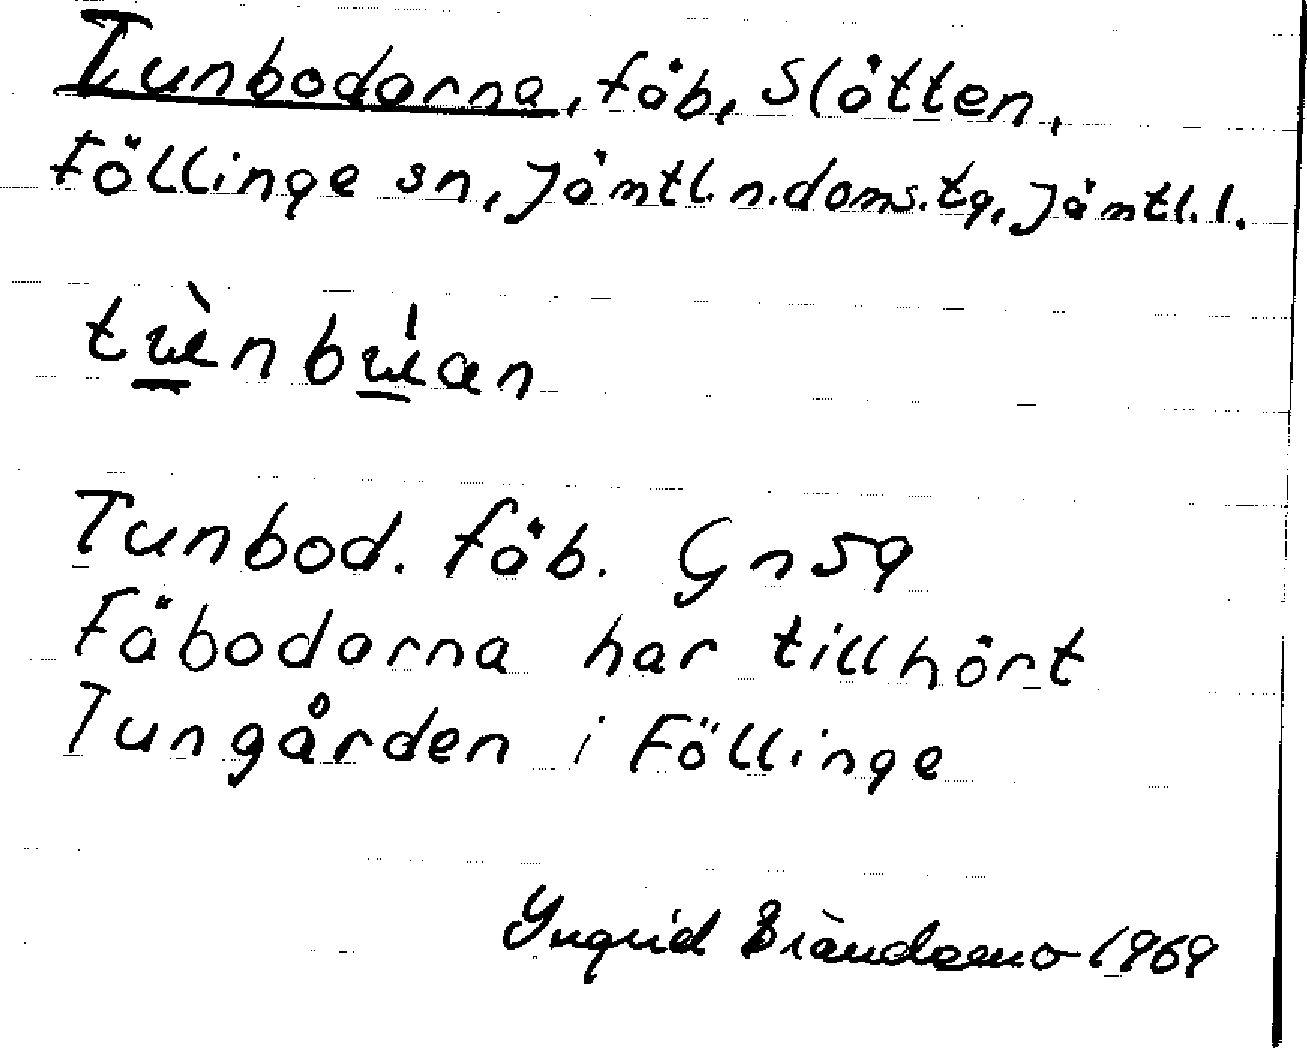 Tunbodarna, fäb, Slåtten,
Föllinge sn, Jämtl. n. doms. tg, Jämtl. l.
Tunbod. fäb. Gn 59
Fäbodarna har tillhört
Tungården i Föllinge
Yngrid 1969